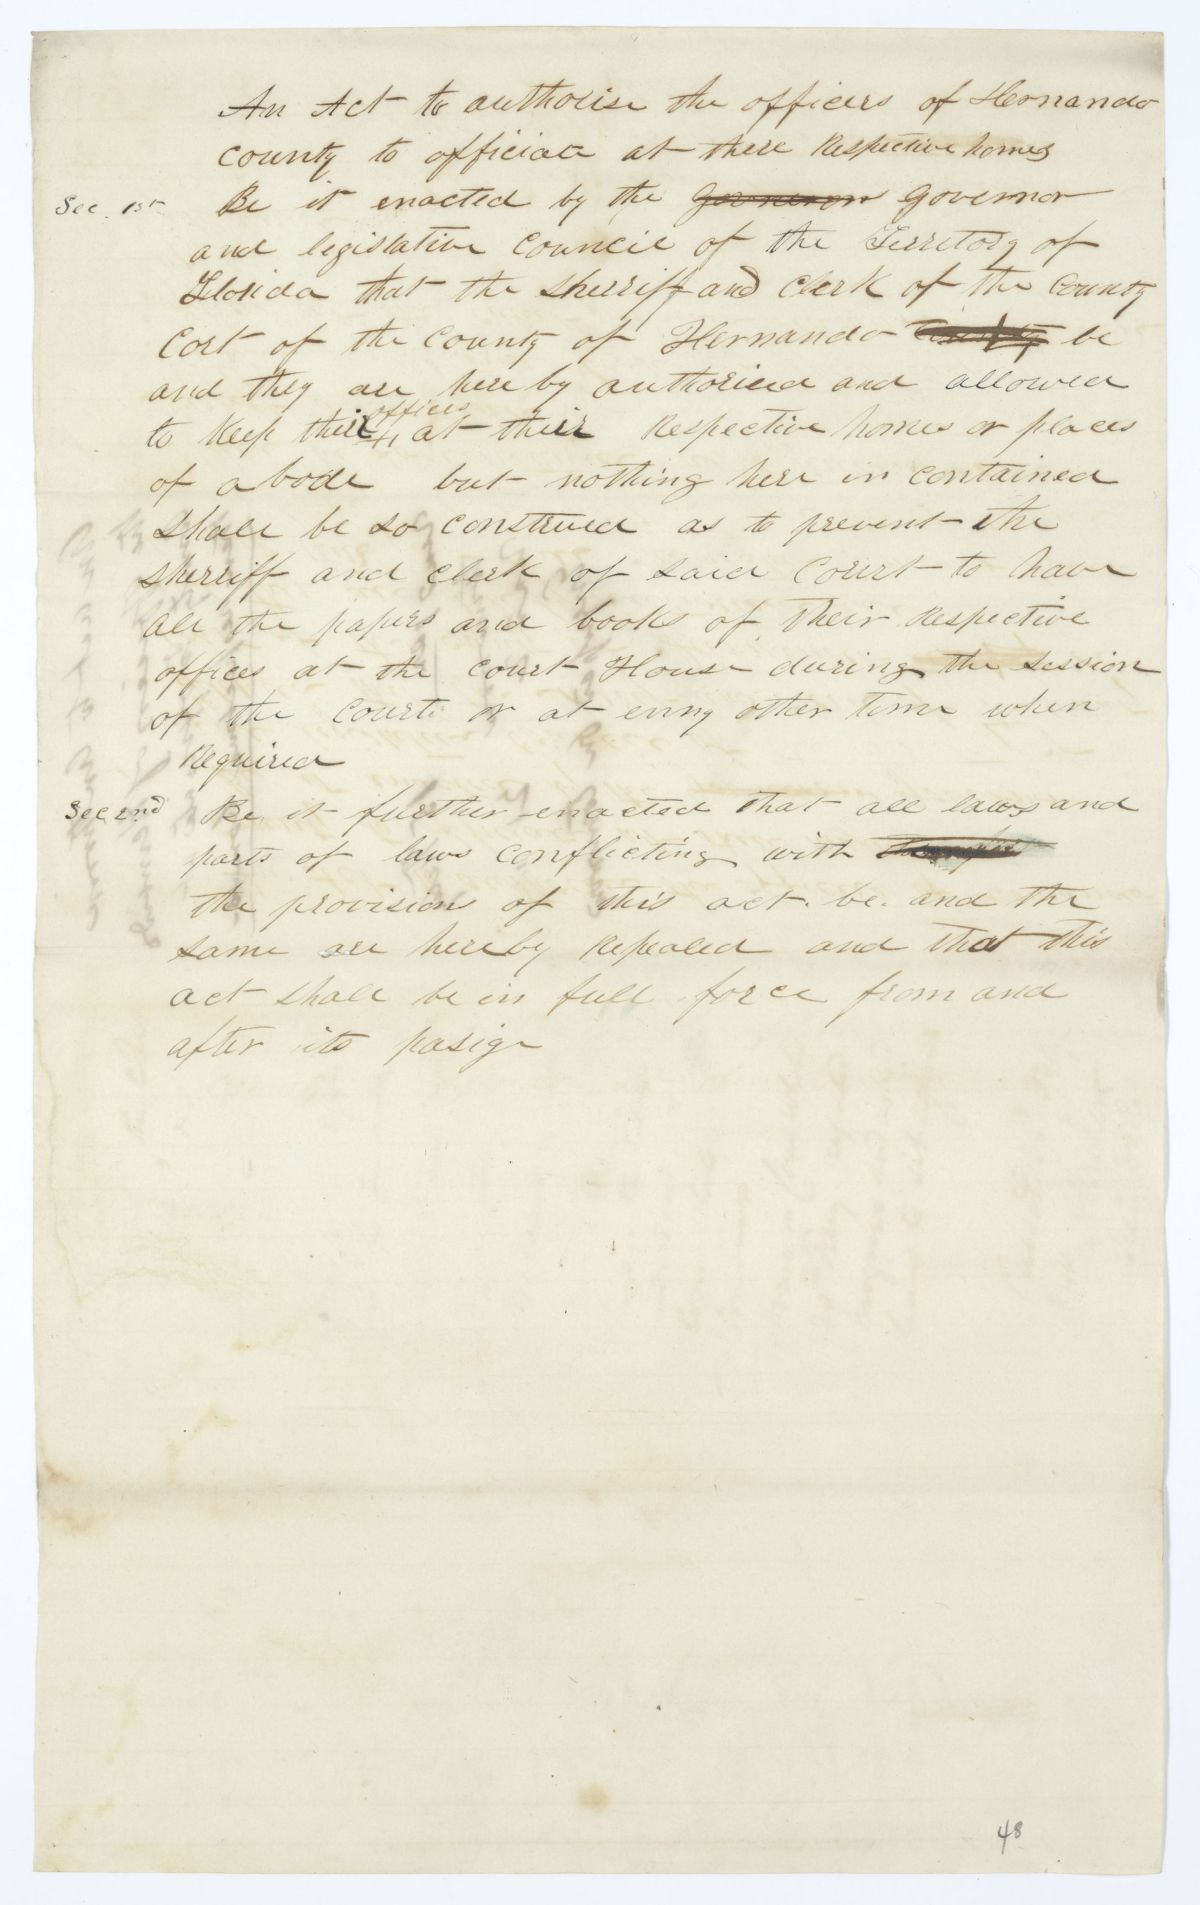 An Act to authorise the officers of Hernando
county to officiate at there Respective homes
Sec. 1st Be it enacted by the Governor
and legislative Council of the Territory of
Florida that the Sherriff and Clerk of the County
Cort of the County of Hernando County be
and they are here by authorised and allowed
to Keep their offices at their Respective homes or places
of abode but nothing here in contained
Shall be so construed as to prevent the
Sherriff and Clerk of said Court to have
all the papers and books of their Respective
offices at the Court House during the session
of the Court or at enny other time when
Required
Sec 2nd Be it further enacted that all laws and
parts of laws conflicting with
the provisions of this act be and the
same are hereby Repealed and that this
act shall be in full force from and
after its pasige
48